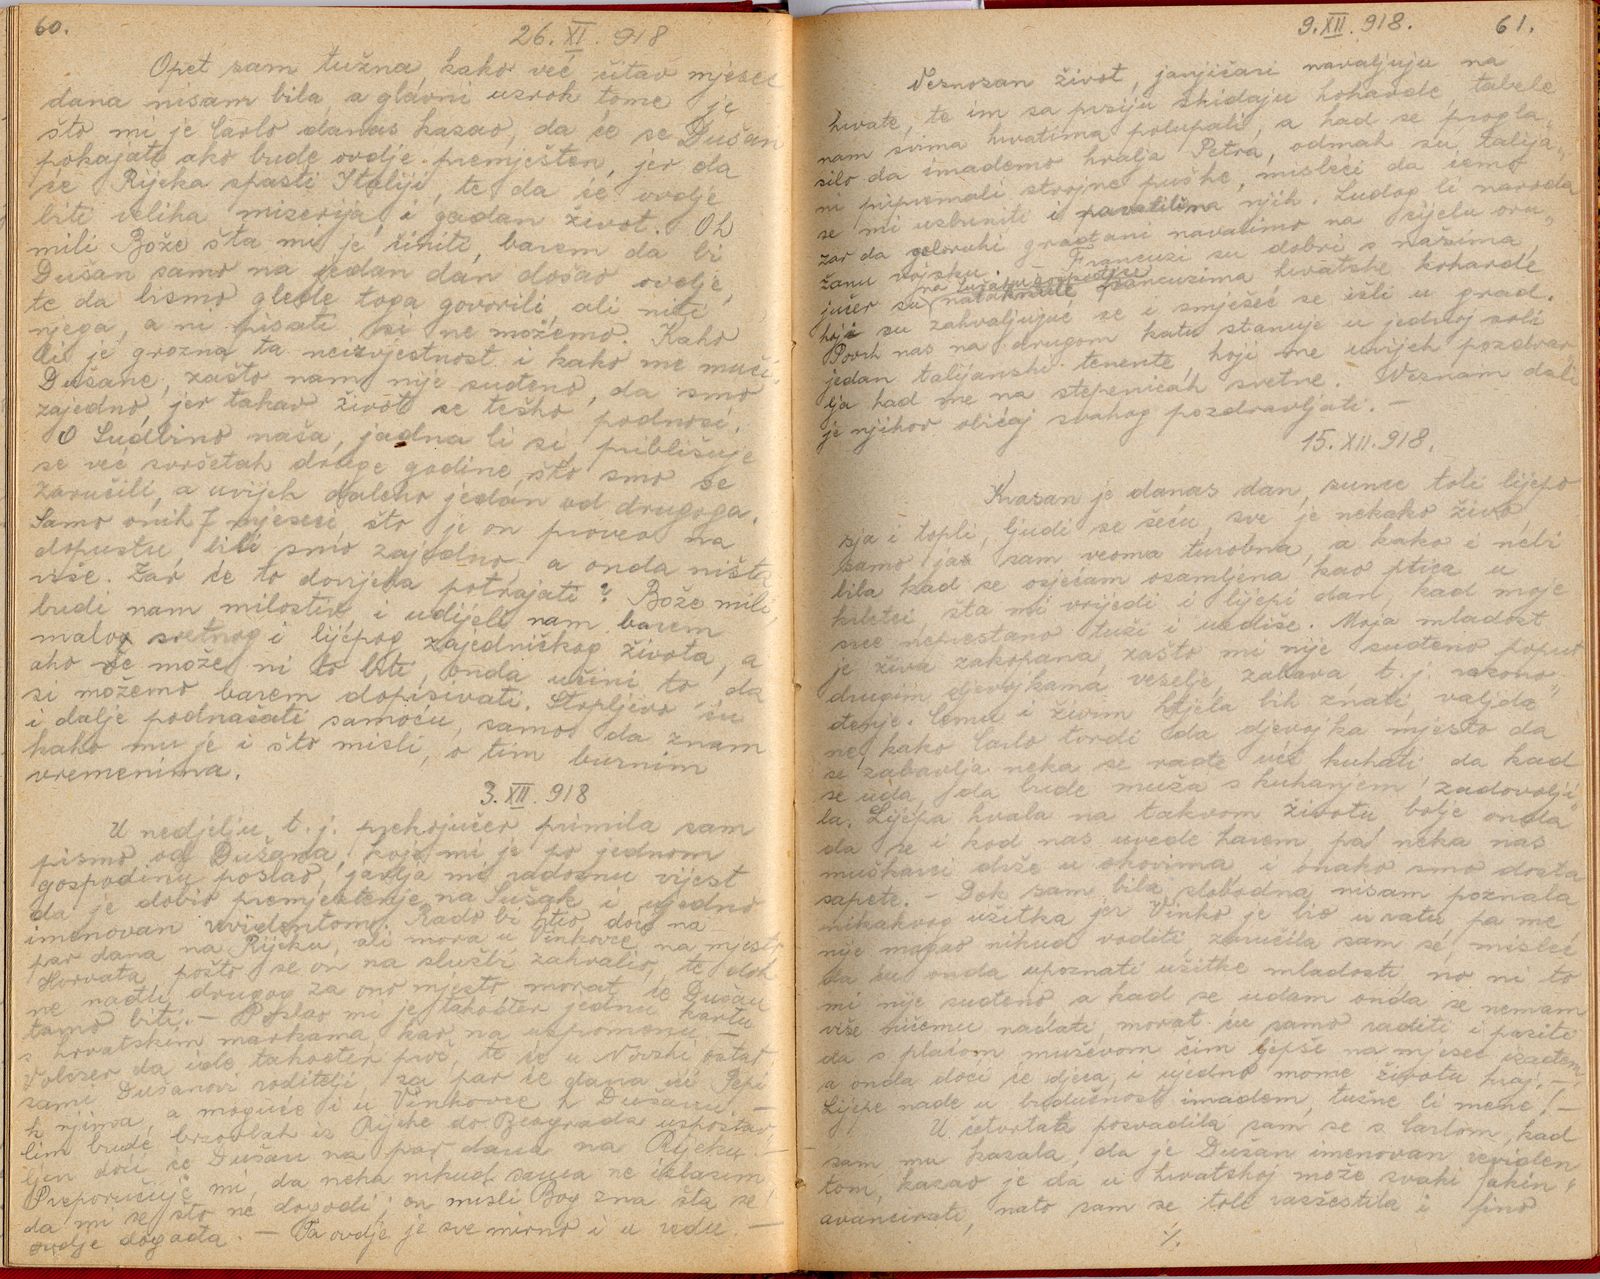 60.
26. XI. 918
Opet sam tužna, kako već čitav mjesec
dana nisam bila, a glavni uzrok tome je
što mi je Carlo danas kazao, da će se Dušan
pokajati ako bude ovdje premješten, jer da
će Rijeka spasti Italiji, te da će ovdje
biti velika mizerija i gadan život. Oh
mili Bože šta mi je činiti, barem da bi
Dušan samo na jedan dan došao ovdje,
te da bismo glede toga govorili, ali niti
njega, a ni pisati si ne možemo. Kako
li je grozna ta neizvjestnost i kako me muči.
Dušane, zašto nam nije suđeno, da smo
zajedno, jer takav život se teško podnosi.
O Sudbino naša, jadna li si, približuje
se već svršetak druge godine, što smo se
zaručili, a uvijek daleko jedan od drugoga.
Samo onih 7 mjeseci, što je on proveo na
dopustu, bili smo zajedno a onda ništa
više. Zar će to dovijeka potrajati? Bože mili,
budi nam milostiv i udijeli nam barem
malog sretnog i lijepog zajedničkog života, a
ako ne može ni to biti, onda učini to da
si možemo barem dopisivati. Strpljivo ću
i dalje podnašati samoću, samo da znam
kako mu je i što misli, o tim burnim
vremenima.
3. XII. 918
U nedjelju, t. j. prekojučer primila sam
pismo od Dušana, koje mi je po jednom
gospodinu poslao, javlja mi radosnu vijest
da je dobio premještenje na Sušak i ujedno
imenovan revidentom. Rado bi htio doć na
par dana na Rijeku, ali mora u Vinkovce na mjesto
Horvata, pošto se on na službi zahvalio, te dok
ne nađu drugog za ono mjesto, morat će Dušan
tamo biti. — Poslao mi je također jednu kartu
s hrvatskim markama, kao na uspomenu. —
da ide također prvi, te će u Novski ostat
sami Dušanovi roditelji, za par će dana ići Pepi
k njima, a moguće i u Vinkovce k Dušanu. —
čim bude brzovlak iz Rijeke do Beograda uspostav
ljen doći će Dušan na par dana na Rijeku. —
Preporučuje mi, da neka nikud sama ne izlazim,
da mi se što ne dogodi; on misli Bog zna šta se
ovdje događa. — Ta ovdje je sve mirno i u redu —
9. XII. 918. 61.
Nesnosan život, janjičari navaljuju na
hrvate, te im sa prsiju skidaju kokarde, tabele
nam svima hrvatima polupali, a kad se progla„
silo da imademo kralja Petra, odmah su talija„
ni pripremali strojne puške, misleći da ćemo
se mi uzbuniti i navaliti na njih. Ludog li naroda
zar da goloruki građani navalimo na cijelu oru„
žanu vojsku. — Francuzi su dobri s našima,
jučer su francuzima hrvatske kokarde
koji su zahvaljujuć se i smješeć se išli u grad.
Povrh nas na drugom katu stanuje u jednoj sobi
jedan talijanski tenente, koji me uvijek pozdrav
lja kad me na stepenicah sretne. Neznam dali
je njihov običaj svakog pozdravljati. —
15. XII. 918.
Krasan je danas dan, sunce toli lijepo
sja i topli, ljudi se šeću, sve je nekako živo,
samo ja sam veoma turobna, a kako i nebi
bila kad se osjećam osamljena kao ptica u
krletci, šta mi vrijedi i lijepi dan, kad moje
srce neprestano tuži i uzdiše. Moja mladost
je živa zakopana, zašto mi nije suđeno poput
drugim djevojkama veselje, zabava t. j. razono„
đenje. Čemu i živim htjela bih znati, valjda
ne, kako Carlo tvrdi da djevojka mjesto da
se zabavlja neka se rađe uči kuhati da kad
se uda, da bude muža s kuhanjem zadovolji„
la. Lijepa hvala na takvom životu bolje onda
da se i kod nas uvede harem, pa neka nas
muškarci drže u okovima i onako smo dosta
sapete. — Dok sam bila slobodna nisam poznala
nikakvog užitka jer Vinko je bio u ratu pa me
nije mogao nikud voditi, zaručila sam se, misleć
da ću onda upoznati užitke mladosti no ni to
mi nije suđeno, a kad se udam onda se nemam
više ničemu nadati, morat ću samo raditi i paziti
da s plaćom muževom čim ljepše na mjesec izađem,
a onda doći će djeca, i ujedno mome životu kraj. —
Lijepe nade u budućnost imadem, tužne li mene! —
U četvrtak posvadila sam se s Carlom, kad
sam mu kazala, da je Dušan imenovan reviden
tom, kazao je da u hrvatskoj može svaki fakin
avancirati, nato sam se tole razžestila i fino
./.